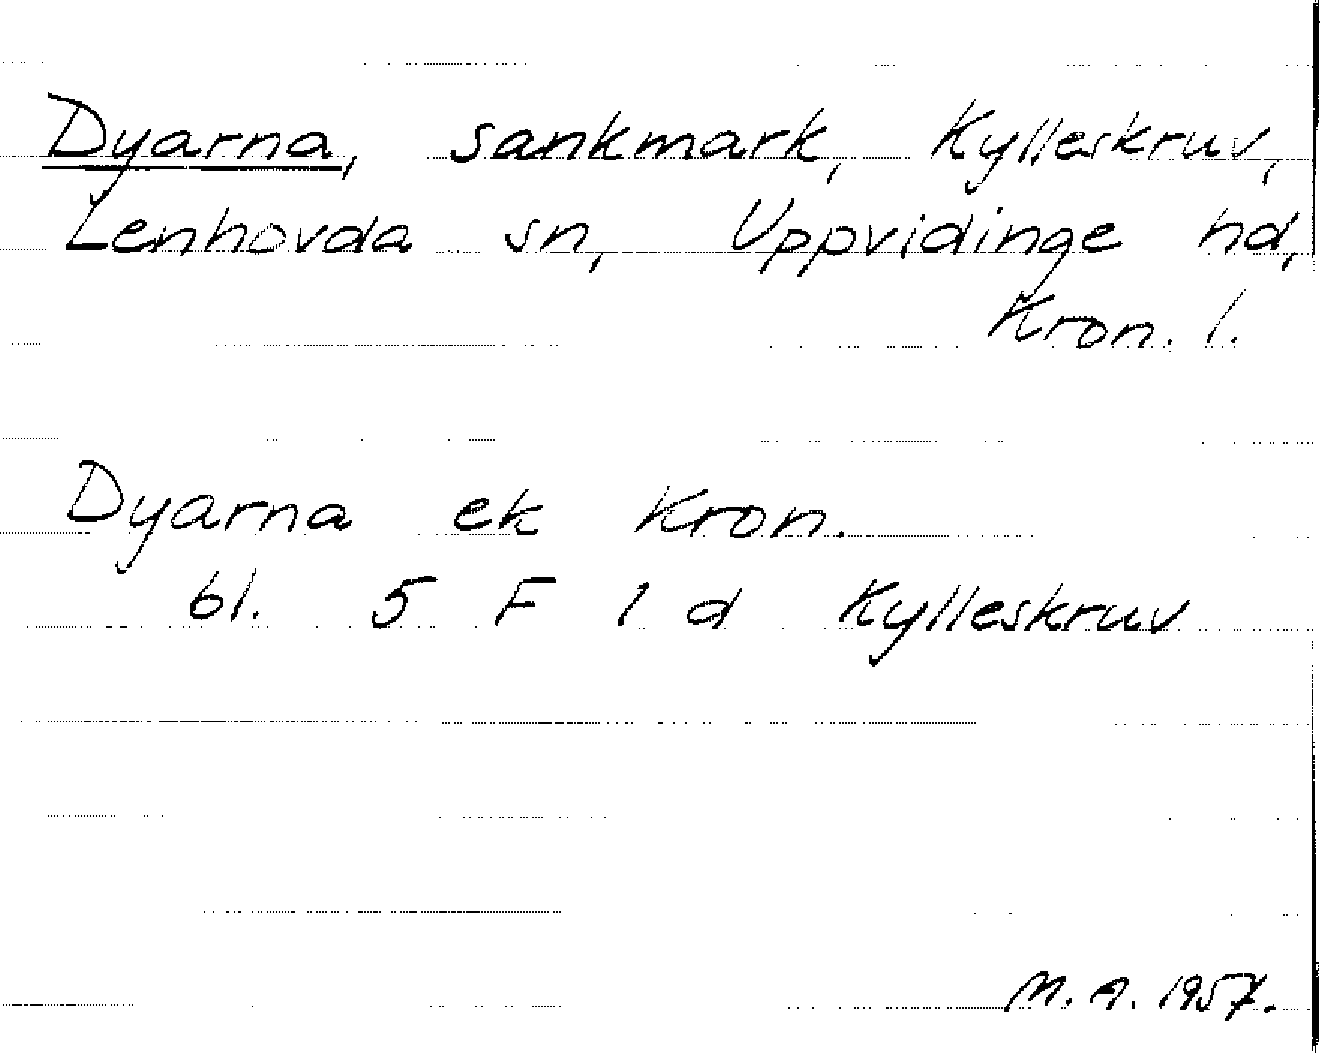 Dyarna, sankmark, Kylleskruv,
Lenhovda sn, Uppvidinge hd,
Kron. l.
Dyarna ek Kron.
bl. 5 F 1 d Kylleskruv
M. A. 1957.